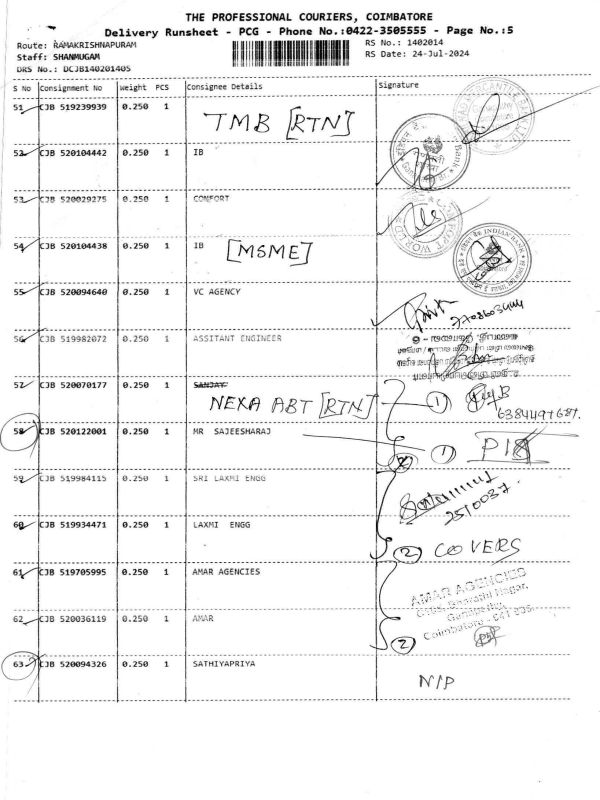 THE PROFESSIONAL COURIERS, COIMBATORE
Delivery Runsheet - PCG - Phone No.:0422-3505555 - Page No.:5
Route: RAMAKRISHNAPURAM
RS No.: 1402014
Staff: SHANMUGAM
RS Date: 24-Jul-2024
DRS No.: DCJB140201405
S No Consignment No Weight PCS Consignee Details Signature
51 CJB 519239939 0.250 1
TMB [RTN]
52 CJB 520104442 0.250 1 IB
53 CJB 520029275 0.250 1 COMFORT
54 CJB 520104438 0.250 1 IB [MSME]
INDIAN BANK
55 CJB 520094640 0.250 1 VC AGENCY
56 CJB 519982072 0.250 1 ASSITANT ENGINEER
57 CJB 520070177 0.250 1 SANJAY
NEXA ABT [RTN] 1
58 CJB 520122001 0.250 1 MR SAJEESHARAJ 1
59 CJB 519984115 0.250 1 SRI LAXMI ENGG
2510037
60 CJB 519934471 0.250 1 LAXMI ENGG
2 COVERS
61 CJB 519705995 0.250 1 AMAR AGENCIES
AMAR AGENCIES
Bharathi Nagar,
Ganapathy,
Coimbatore - 641 006.
62 CJB 520036119 0.250 1 AMAR
2
63 CJB 520094326 0.250 1 SATHIYAPRIYA
N/P